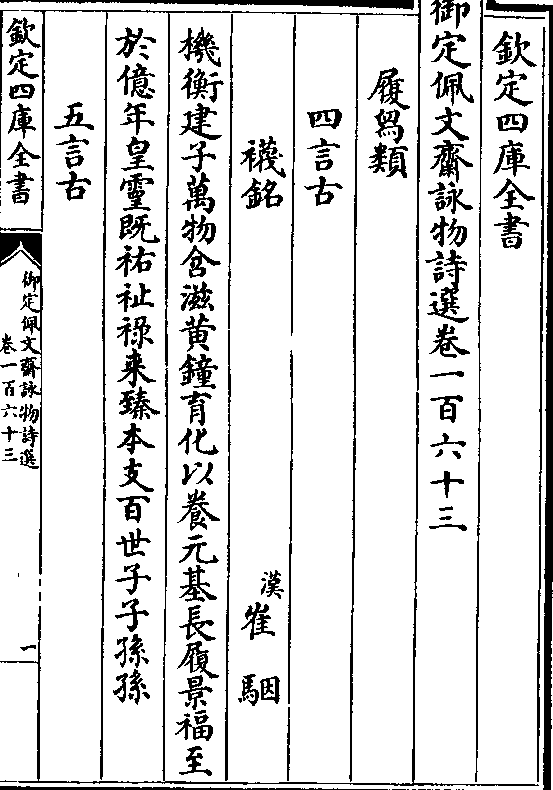 欽定四庫全書
御定佩文齋詠物詩選卷一百六十三
履舄類
四言古
襪銘
漢崔駰
機衡建子萬物含滋黃鐘育化以養元基長履景福至
於億年皇靈既祐祉祿來臻本支百世子子孫孫
五言古
欽定四庫全書
御定佩文齋詠物詩選
卷一百六十三
一